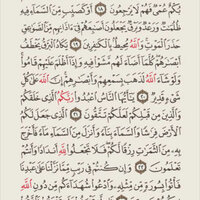 بُكْمٌ عُمْىٌ فَهُمْ لَا يَرْجِعُونَ ١٨ أَوْ كَصَيِّبٍ مِّنَ السَّمَآءِ فِيهِ
ظُلُمَٰتٌ وَرَعْدٌ وَبَرْقٌ يَجْعَلُونَ أَصَٰبِعَهُمْ فِىٓ ءَاذَانِهِم مِّنَ الصَّوَٰعِقِ
حَذَرَ الْمَوْتِ وَاللَّهُ مُحِيطٌۢ بِالْكَٰفِرِينَ ١٩ يَكَادُ الْبَرْقُ يَخْطَفُ
أَبْصَٰرَهُمْ كُلَّمَآ أَضَآءَ لَهُم مَّشَوْا۟ فِيهِ وَإِذَآ أَظْلَمَ عَلَيْهِمْ قَامُوا۟
وَلَوْ شَآءَ اللَّهُ لَذَهَبَ بِسَمْعِهِمْ وَأَبْصَٰرِهِمْ إِنَّ اللَّهَ عَلَىٰ كُلِّ
شَىْءٍ قَدِيرٌ ٢٠ يَٰٓأَيُّهَا النَّاسُ اعْبُدُوا۟ رَبَّكُمُ الَّذِى خَلَقَكُمْ
وَالَّذِينَ مِن قَبْلِكُمْ لَعَلَّكُمْ تَتَّقُونَ ٢١ الَّذِى جَعَلَ لَكُمُ
الْأَرْضَ فِرَٰشًا وَالسَّمَآءَ بِنَآءً وَأَنزَلَ مِنَ السَّمَآءِ مَآءً فَأَخْرَجَ
بِهِۦ مِنَ الثَّمَرَٰتِ رِزْقًا لَّكُمْ فَلَا تَجْعَلُوا۟ لِلَّهِ أَندَادًا وَأَنتُمْ
تَعْلَمُونَ ٢٢ وَإِن كُنتُمْ فِى رَيْبٍ مِّمَّا نَزَّلْنَا عَلَىٰ عَبْدِنَا
فَأْتُوا۟ بِسُورَةٍ مِّن مِّثْلِهِۦ وَادْعُوا۟ شُهَدَآءَكُم مِّن دُونِ اللَّهِ